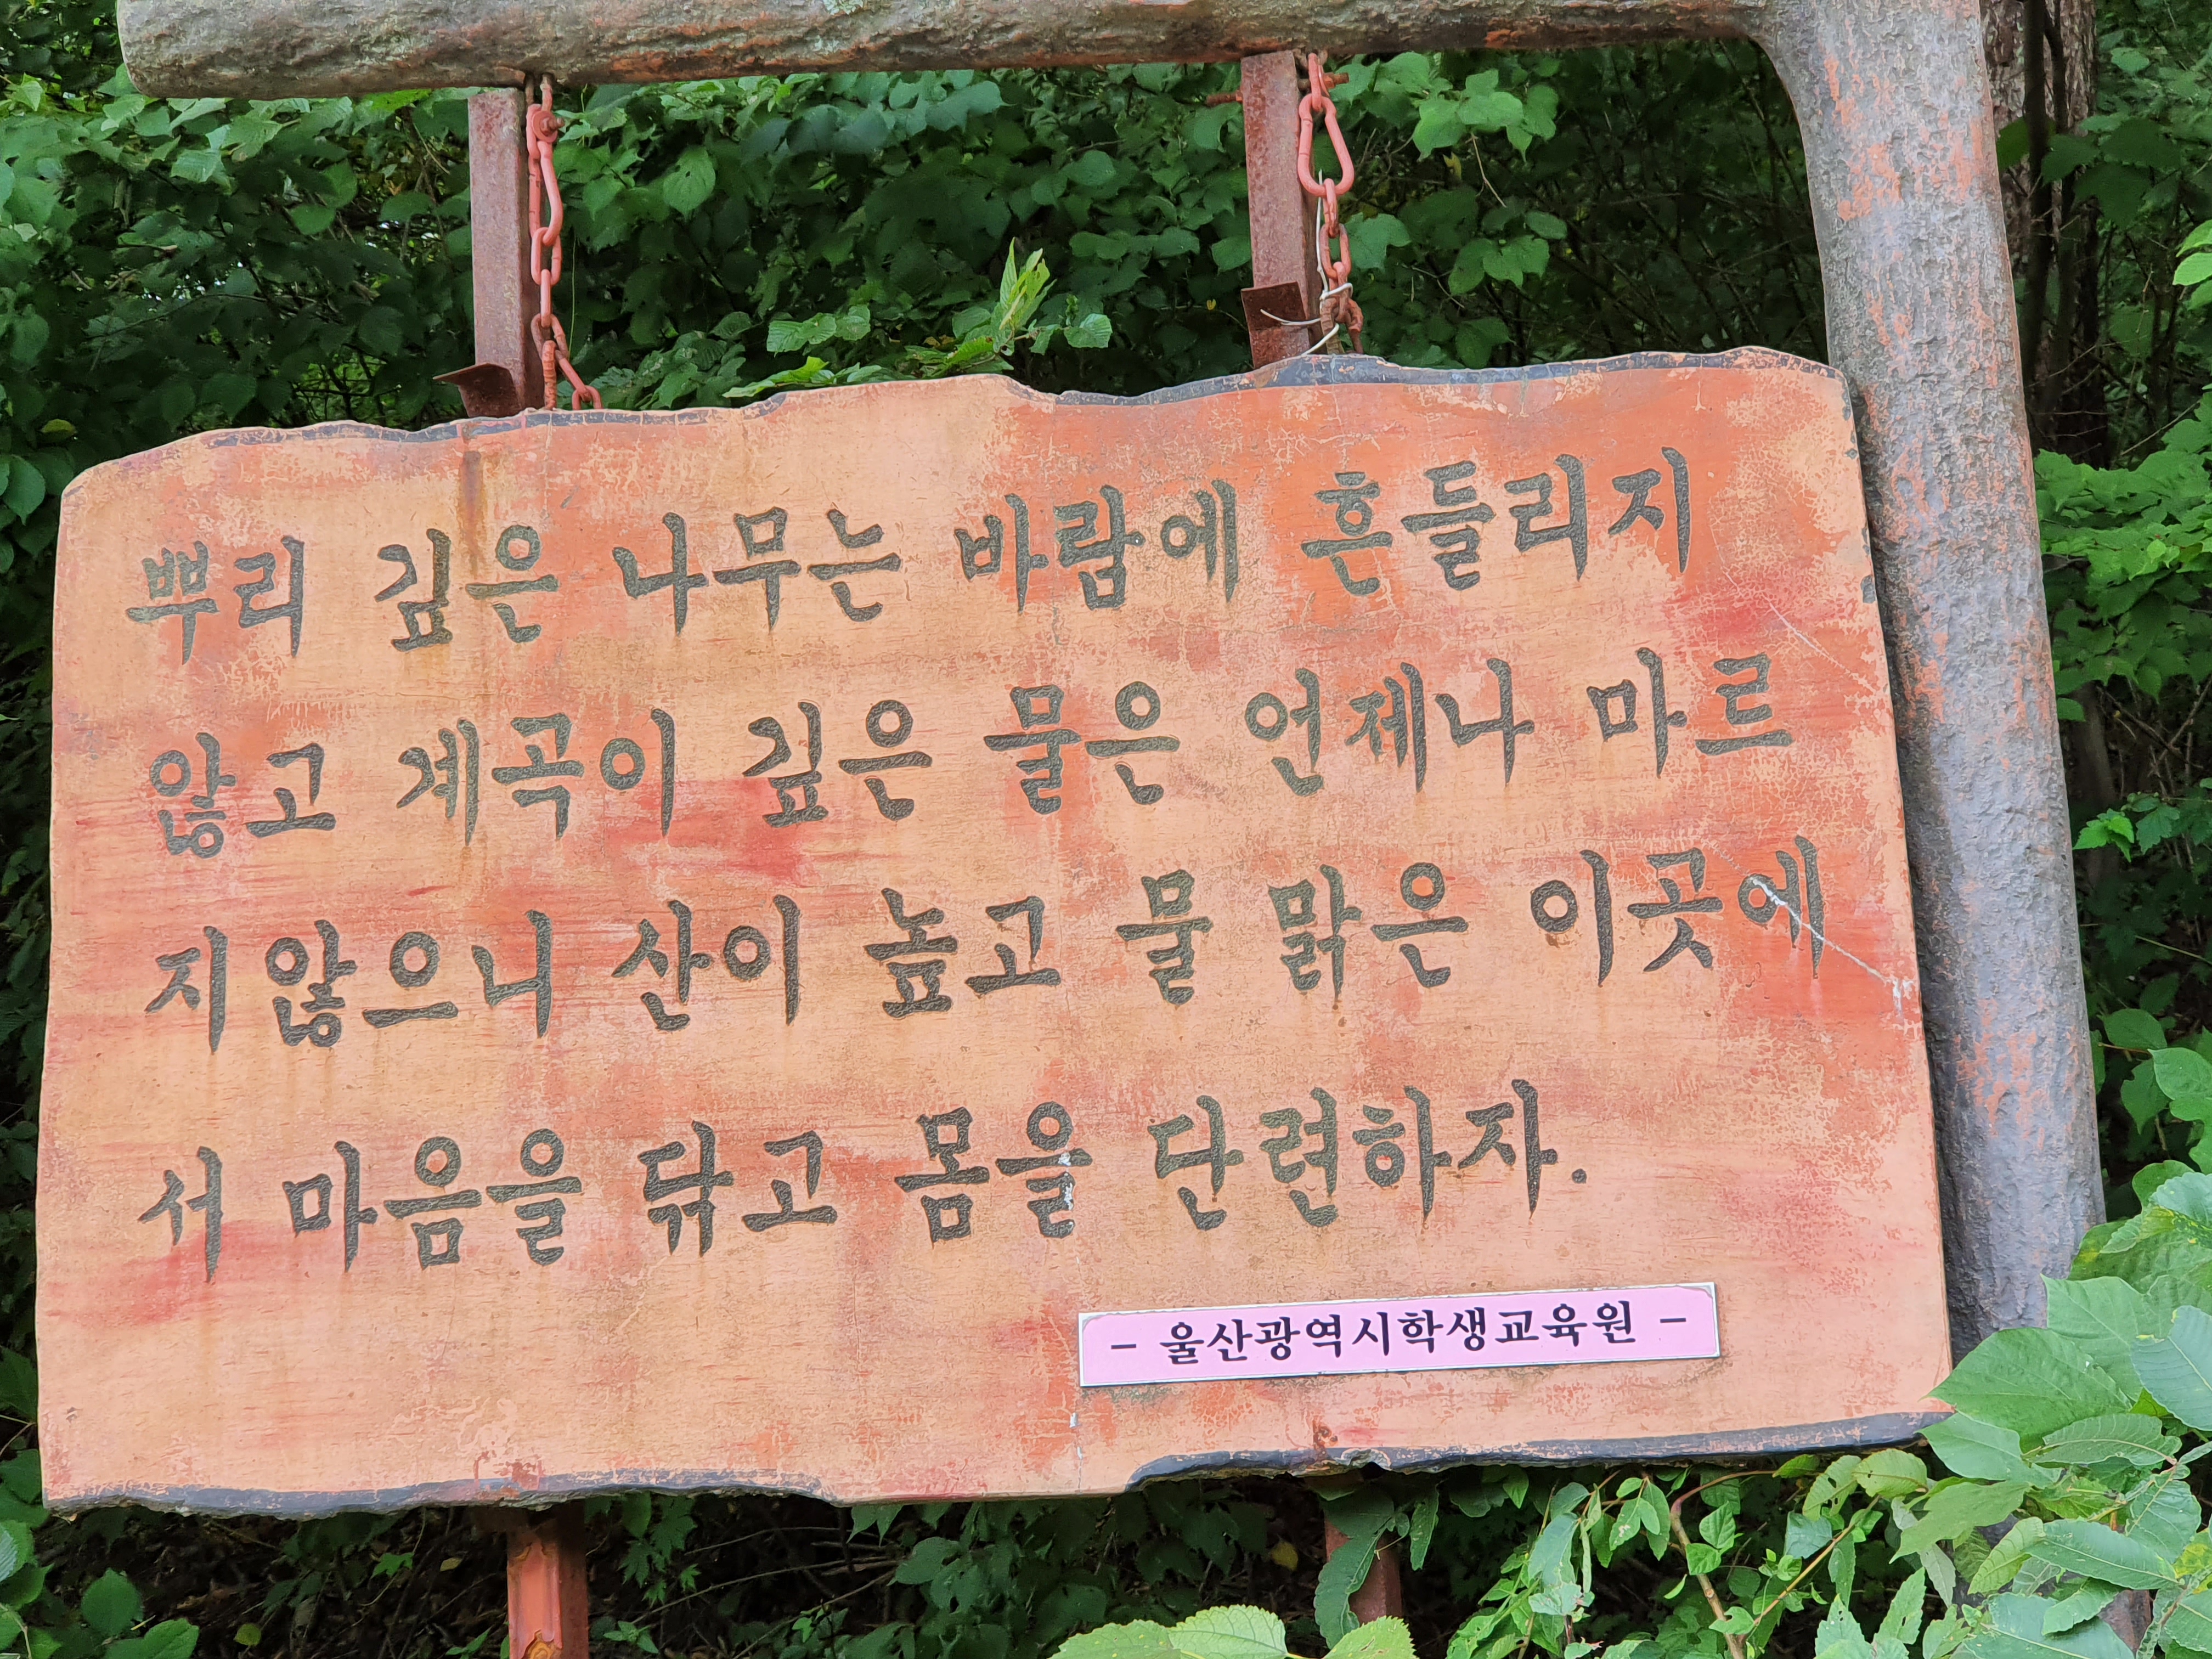 뿌리 깊은 나무는 바람에 흔들리지
않고 계곡이 깊은 물은 언제나 마르
지않으니 산이 높고 물 맑은 이곳에
서 마음을 닦고 몸을 단련하자.
- 울산광역시학생교육원 -